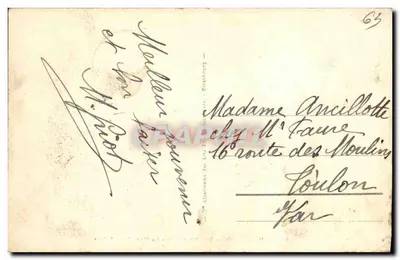 63
Meilleur souvenir
et bon baiser
Madame Ancillotte
chez Mr Faure
16 route des Moulins
Toulon
Var